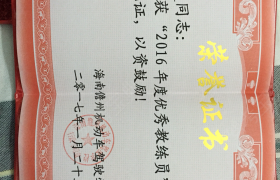 荣誉证书
同志：
获“2016年度优秀教练员”
证，以资鼓励！
海南儋州机动车驾驶
二〇一七年一月二十